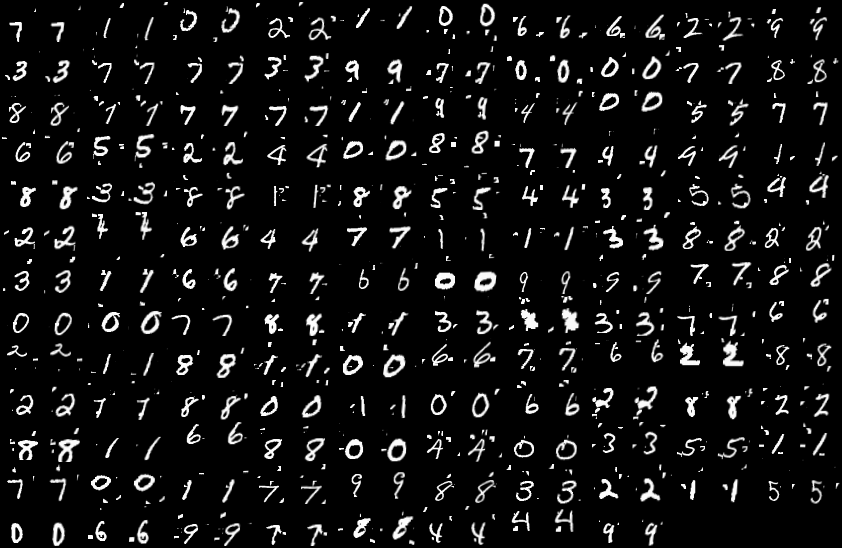 7 7 1 1 0 0 2 2 1 1 0 0 6 6 6 6 2 2 9 9
3 3 7 7 7 7 3 3 9 9 7 7 0 0 0 0 7 7 8 8
8 8 7 7 7 7 7 7 1 1 9 9 4 4 0 0 5 5 7 7
6 6 5 5 2 2 4 4 0 0 8 8 7 7 9 9 9 9 1 1
8 8 3 3 8 8 1 1 8 8 5 5 4 4 3 3 5 5 4 4
2 2 4 4 6 6 4 4 7 7 1 1 1 1 3 3 8 8 2 2
3 3 1 1 6 6 7 7 6 6 0 0 9 9 9 9 7 7 8 8
0 0 0 0 7 7 8 8 1 1 3 3 3 3 7 7 6 6
2 2 1 1 8 8 1 1 0 0 6 6 7 7 6 6 2 2 8 8
2 2 7 7 8 8 0 0 1 1 0 0 6 6 2 2 8 8 2 2
8 8 1 1 6 6 8 8 0 0 4 4 0 0 3 3 5 5 1 1
7 7 0 0 1 1 7 7 9 9 8 8 3 3 2 2 1 1 5 5
0 0 6 6 9 9 7 7 8 8 4 4 4 4 9 9